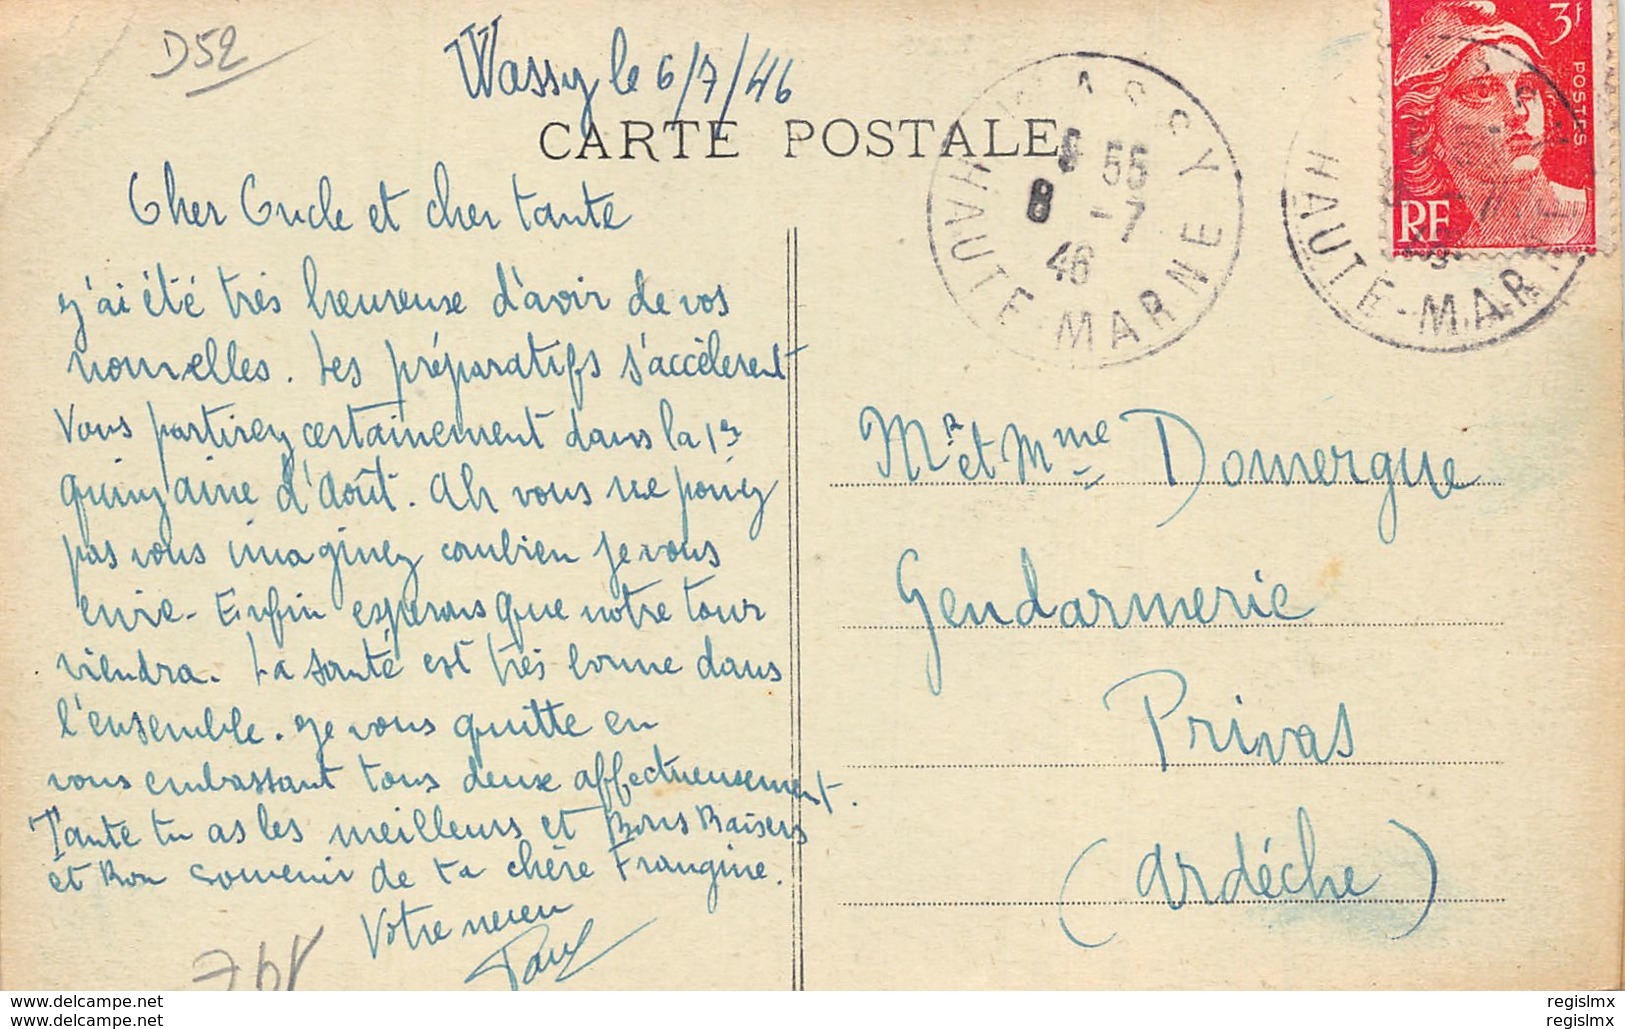 D52
Wassy le 6/7/46
CARTE POSTALE
Cher Oncle et cher tante
J'ai été très heureuse d'avoir de vos
nouvelles. Les préparatifs s'accèlerent
Vous partirez certainement dans la 1re
quinzaine d'Août. Ah vous ne pouvez
pas vous imaginez combien je vous
envie - Enfin esperons que notre tour
viendra. La santé est très bonne dans
l'ensemble. Je vous quitte en
vous embrassant tous deux affectueusement.
Tante tu as les meilleurs et Bons Baisers
et Bon souvenir de ta chère Frangine.
Votre neveu
Paul
WASSY
55
8 -7
46
HAUTE-MARNE
3f
POSTES
RF
HAUTE-MARNE
Mr et Mme Domergue
Gendarmerie
Privas
(Ardèche)
www.delcampe.net
regislmx
www.delcampe.net
regislmx